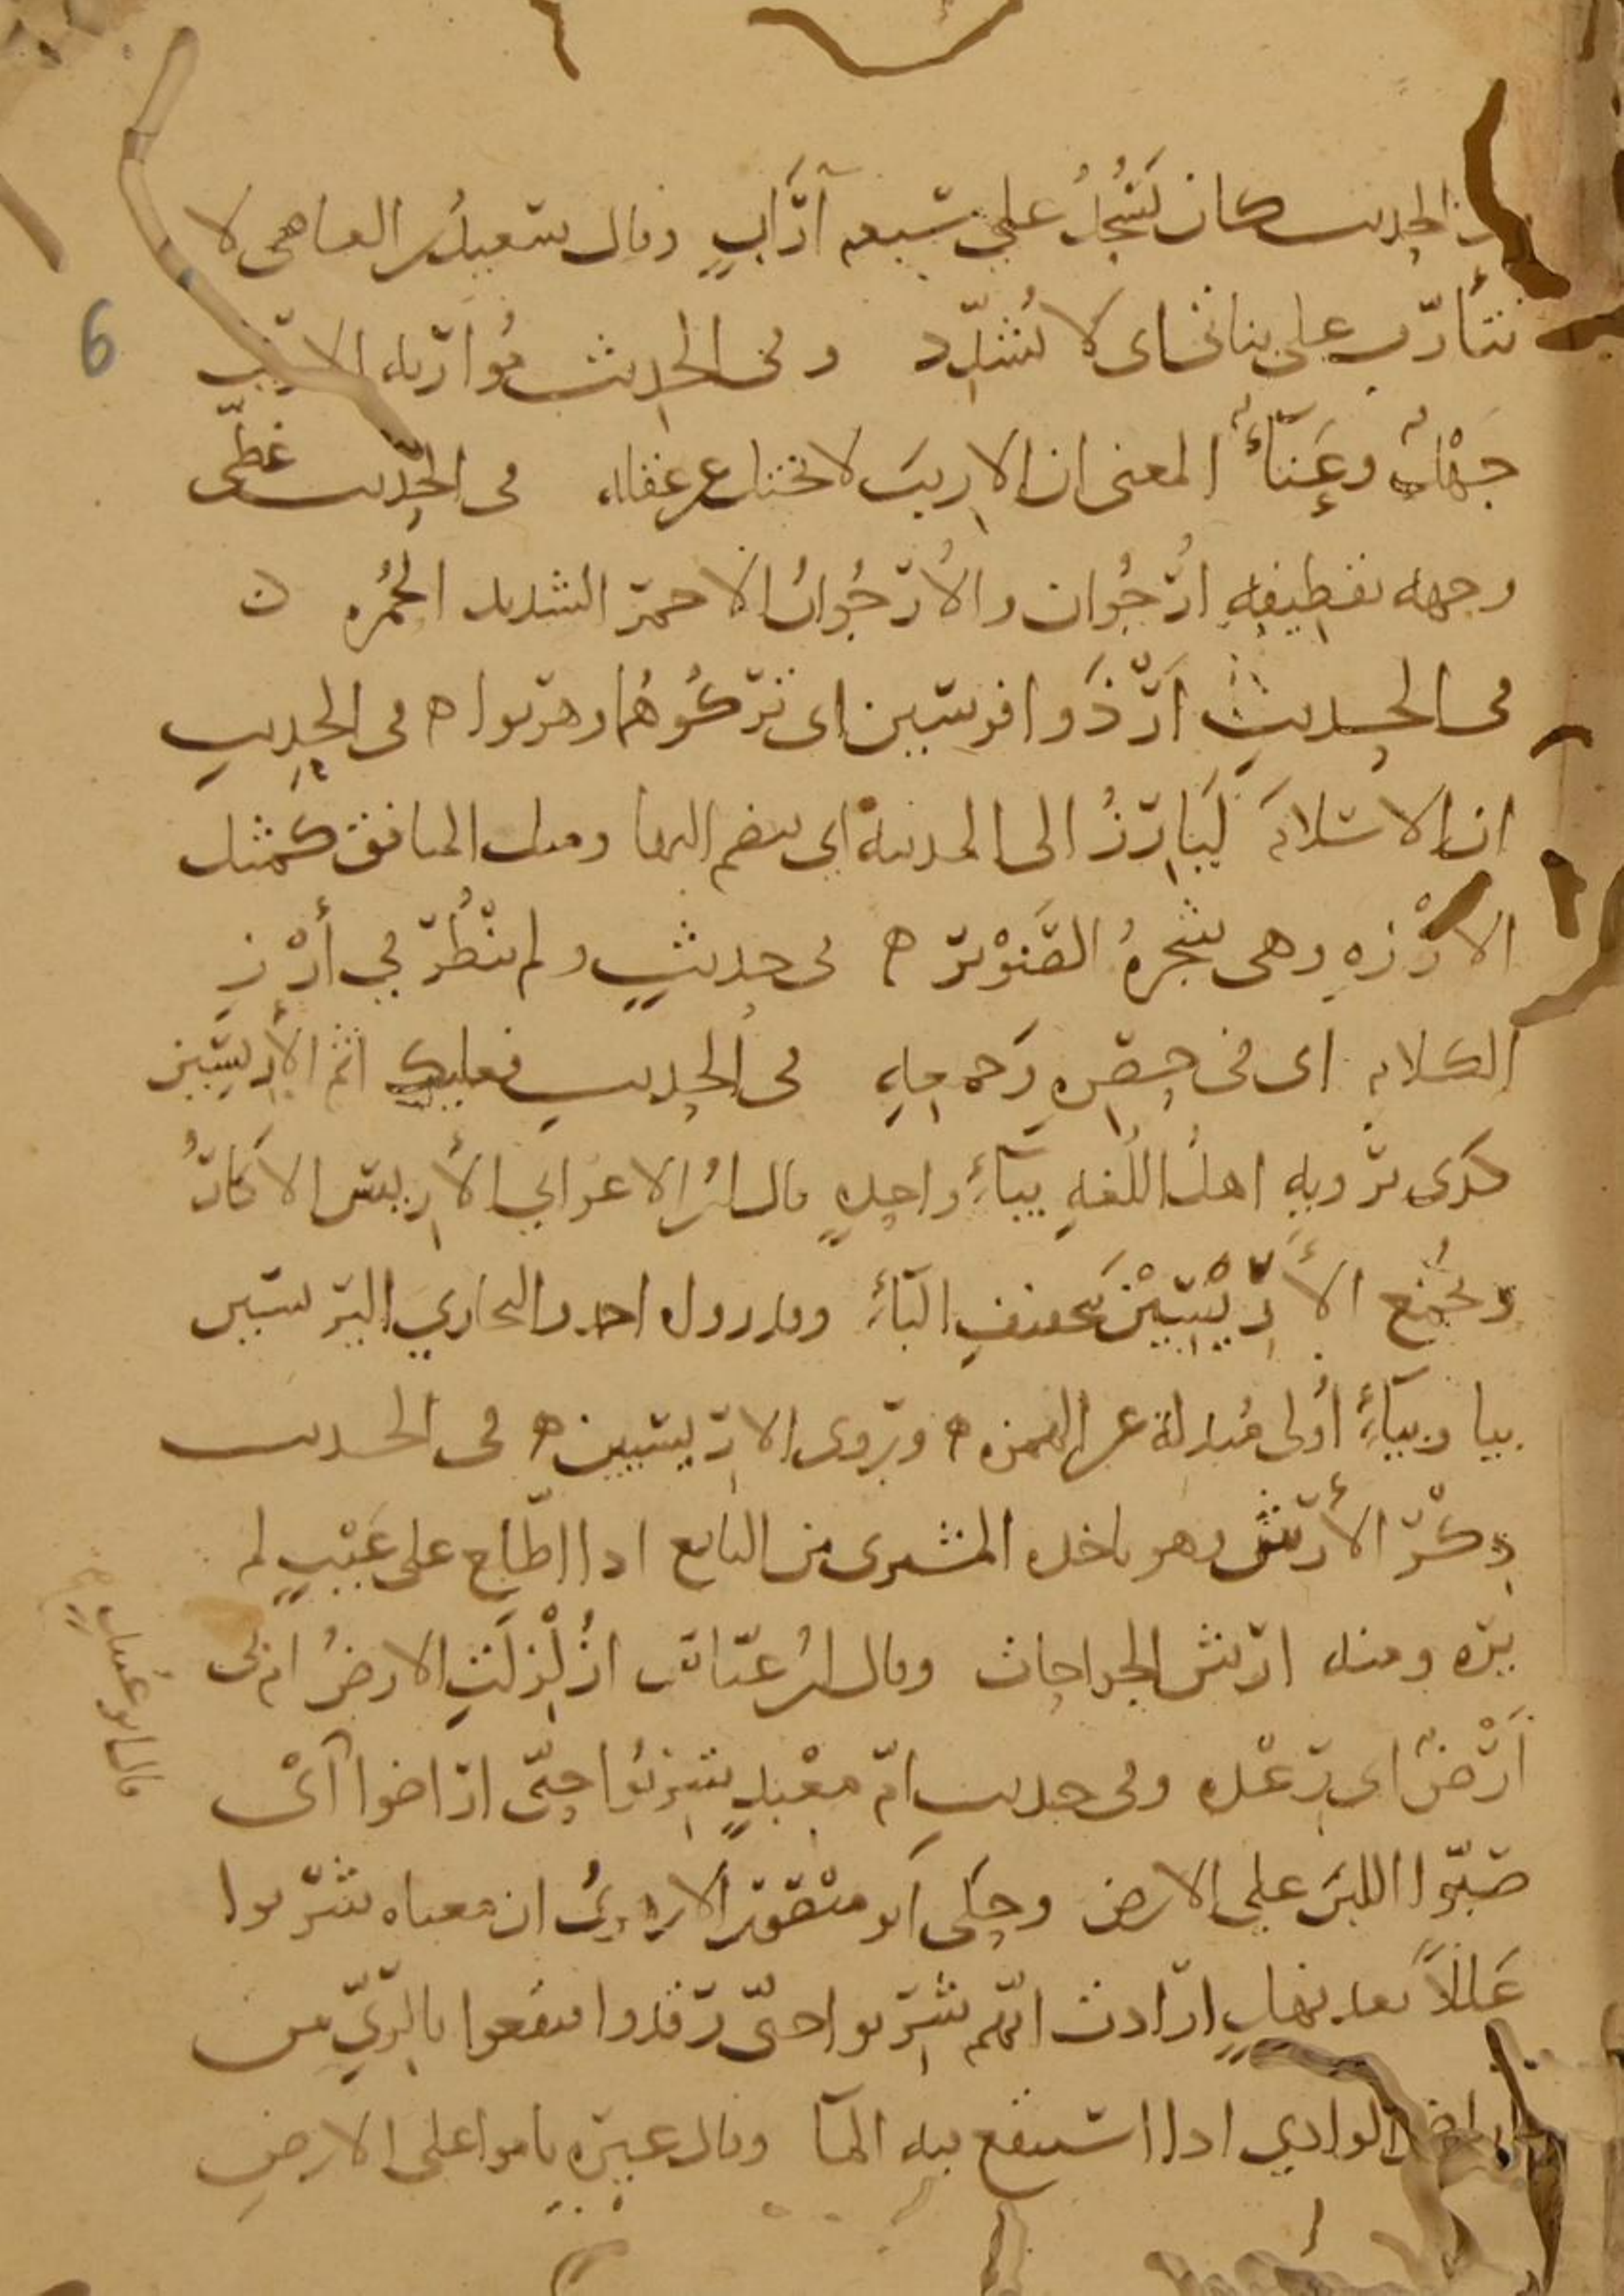 الحديث كان يَسْجُدُ على سبعه آرَابٍ وقال سعيدُ بن العاص لا
تتأرّب على بناتى اى لا تُشدّد وفى الحديث مُوَارَبَه الاريب
جَهْلٌ وعَنَآءٌ المعنى ان الاريبَ لا يختدع عن عقله فى الحديث غطّى
وجهه بقطيفهِ ارْجُوان والأُرْجُوانُ الاحمر الشديد الحُمْره ٥
فى الحديث
ان الاسلامَ لَيَأْرِزُ الى المدينه اى ينضم اليها ومثل المنافق كمثل
الأَرْزهِ وهى شجرهُ الصَّنَوْبَر ه فى حديثٍ ولم ينْظُرْ فى أَرْزِ
الكلامِ اى فى حصْرِهِ وَجمعِهِ فى الحديث فعليك اثم الأَرِيسِين
كذى يرويهِ اهلُ اللُغهِ بيآءٍ واحدهٍ قال ابنُ الاعرابي الأَرِيسُ الاكّارُ
ويُجْمَع الأَرِيْسِيْن بتخفيف اليَآءِ وقد روى احمد والبخاري اليريسيين
بيا وبيآءٍ أُولى مُبدلة عن الهمزه ه ويروى الاريسيين ه فى الحديث
ذِكْرُ الأَرْش وهو ياخذه المشترى من البايع اذا اطّلع على عَيْبٍ لم
يره ومنه ارش الجراحات وقال ابنُ عبّاس ازُلْزِلَتِ الارضُ ام بى
أَرْضٌ اى رِعْده وفى حديث امّ معْبدٍ شربُوا حتّى ارَاضوا أىْ
صَبّوا اللبنَ على الارض وحكى ابو منْصورٍ الازهريُّ ان معناه شَرِبوا
عَلَلاً بعد نهلٍ ارَادت انّهم شربوا حتّى رَوُوا فنقعوا بالرّيّ من
اراضَ الوادي اذا استنقع فيه المآ وقال غيره ناموا على الارضِ
قال ابو عُبيدٍ
6